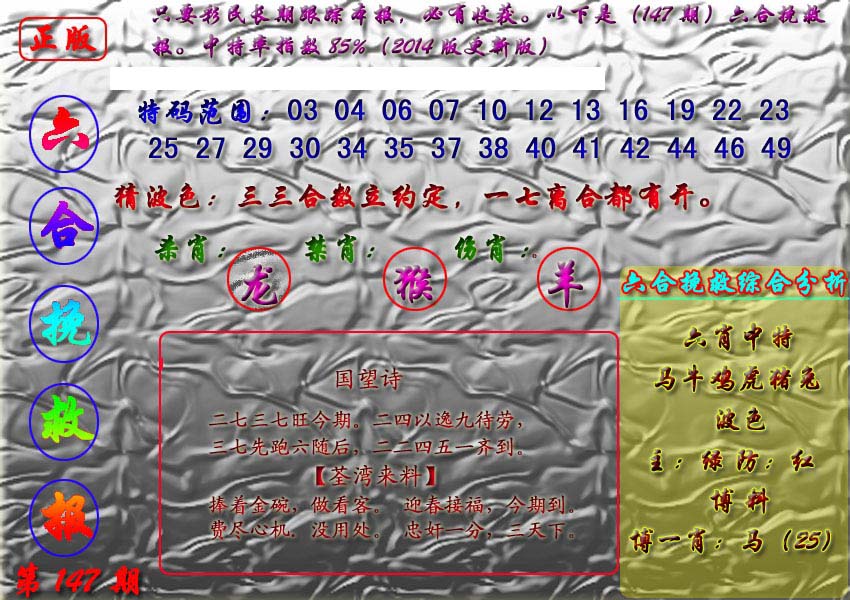 正版
只要彩民长期跟踪本报，必有收获。以下是（147期）六合挽救
报。中特率指数85%（2014版更新版）
六合挽救报
特码范围：03 04 06 07 10 12 13 16 19 22 23
25 27 29 30 34 35 37 38 40 41 42 44 46 49
猜波色：三三合数立约定，一七离合都有开。
杀肖：龙 禁肖：猴 伤肖：羊
国望诗
二七三七旺今期。二四以逸九待劳，
三七先跑六随后，二二四五一齐到。
【荃湾来料】
捧着金碗，做看客。 迎春接福，今期到。
费尽心机，没用处。 忠奸一分，三天下。
六合挽救综合分析
六肖中特
马牛鸡虎猪兔
波色
主：绿防：红
博料
博一肖：马（25）
第147期